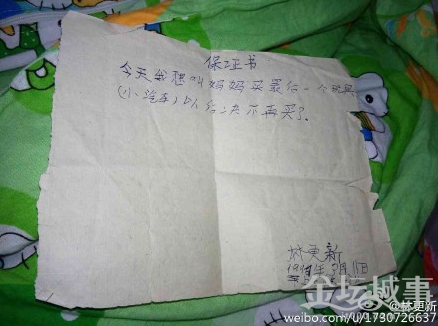 保证书
今天我想叫妈妈买最后一个玩具
(小汽车)以后决不再买了。
林更新
金坛城事
@林更新
weibo.com/u/1730726637